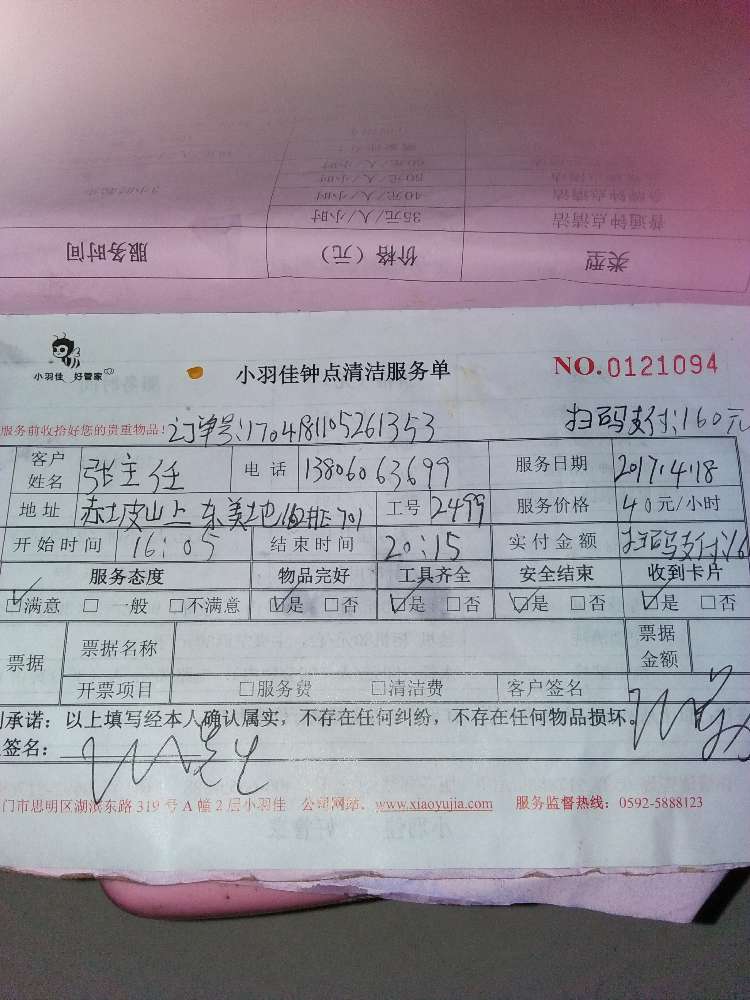 类型 价格（元） 服务时间
普通钟点清洁 35元/人/小时
40元/人/小时
小羽佳 好管家
小羽佳钟点清洁服务单
NO.0121094
服务前收拾好您的贵重物品! 订单号:1704181105261353 扫码支付:160元
客户姓名 张主任 电话 13806063699 服务日期 2017.4.18
地址 赤坡山上东美地 701 工号 2499 服务价格 40元/小时
开始时间 16:05 结束时间 20:15 实付金额 扫码支付:16
服务态度 物品完好 工具齐全 安全结束 收到卡片
☑满意 □一般 □不满意 ☑是 □否 ☑是 □否 ☑是 □否 ☑是 □否
票据 票据名称 票据金额
开票项目 □服务费 □清洁费 客户签名
承诺：以上填写经本人确认属实，不存在任何纠纷，不存在任何物品损坏。
签名：
门市思明区湖滨东路 319 号 A 幢 2 层小羽佳 公司网站：www.xiaoyujia.com 服务监督热线：0592-5888123